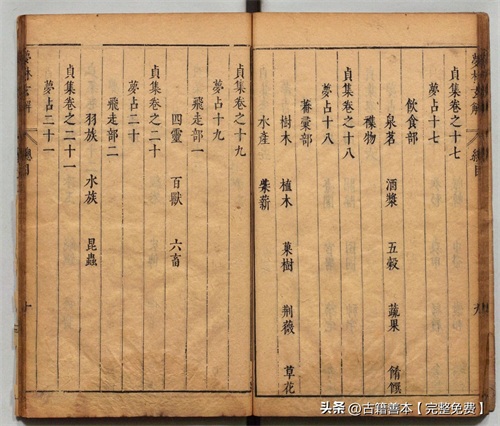 總目 九
貞集卷之十七
夢占十七
飲食部
泉茗 酒漿 五穀 蔬果 脩饌
襍物
貞集卷之十八
夢占十八
彙部
樹木 植木 菓樹 荊薇 草花
水産 柴薪
貞集卷之十九
夢占十九
飛走部一
四靈 百獸 六畜
貞集卷之二十
夢占二十
飛走部二
羽族 水族 昆蟲
貞集卷之二十一
夢占二十一
夢林玄解 總目 十
头条 @古籍善本【完整免费】